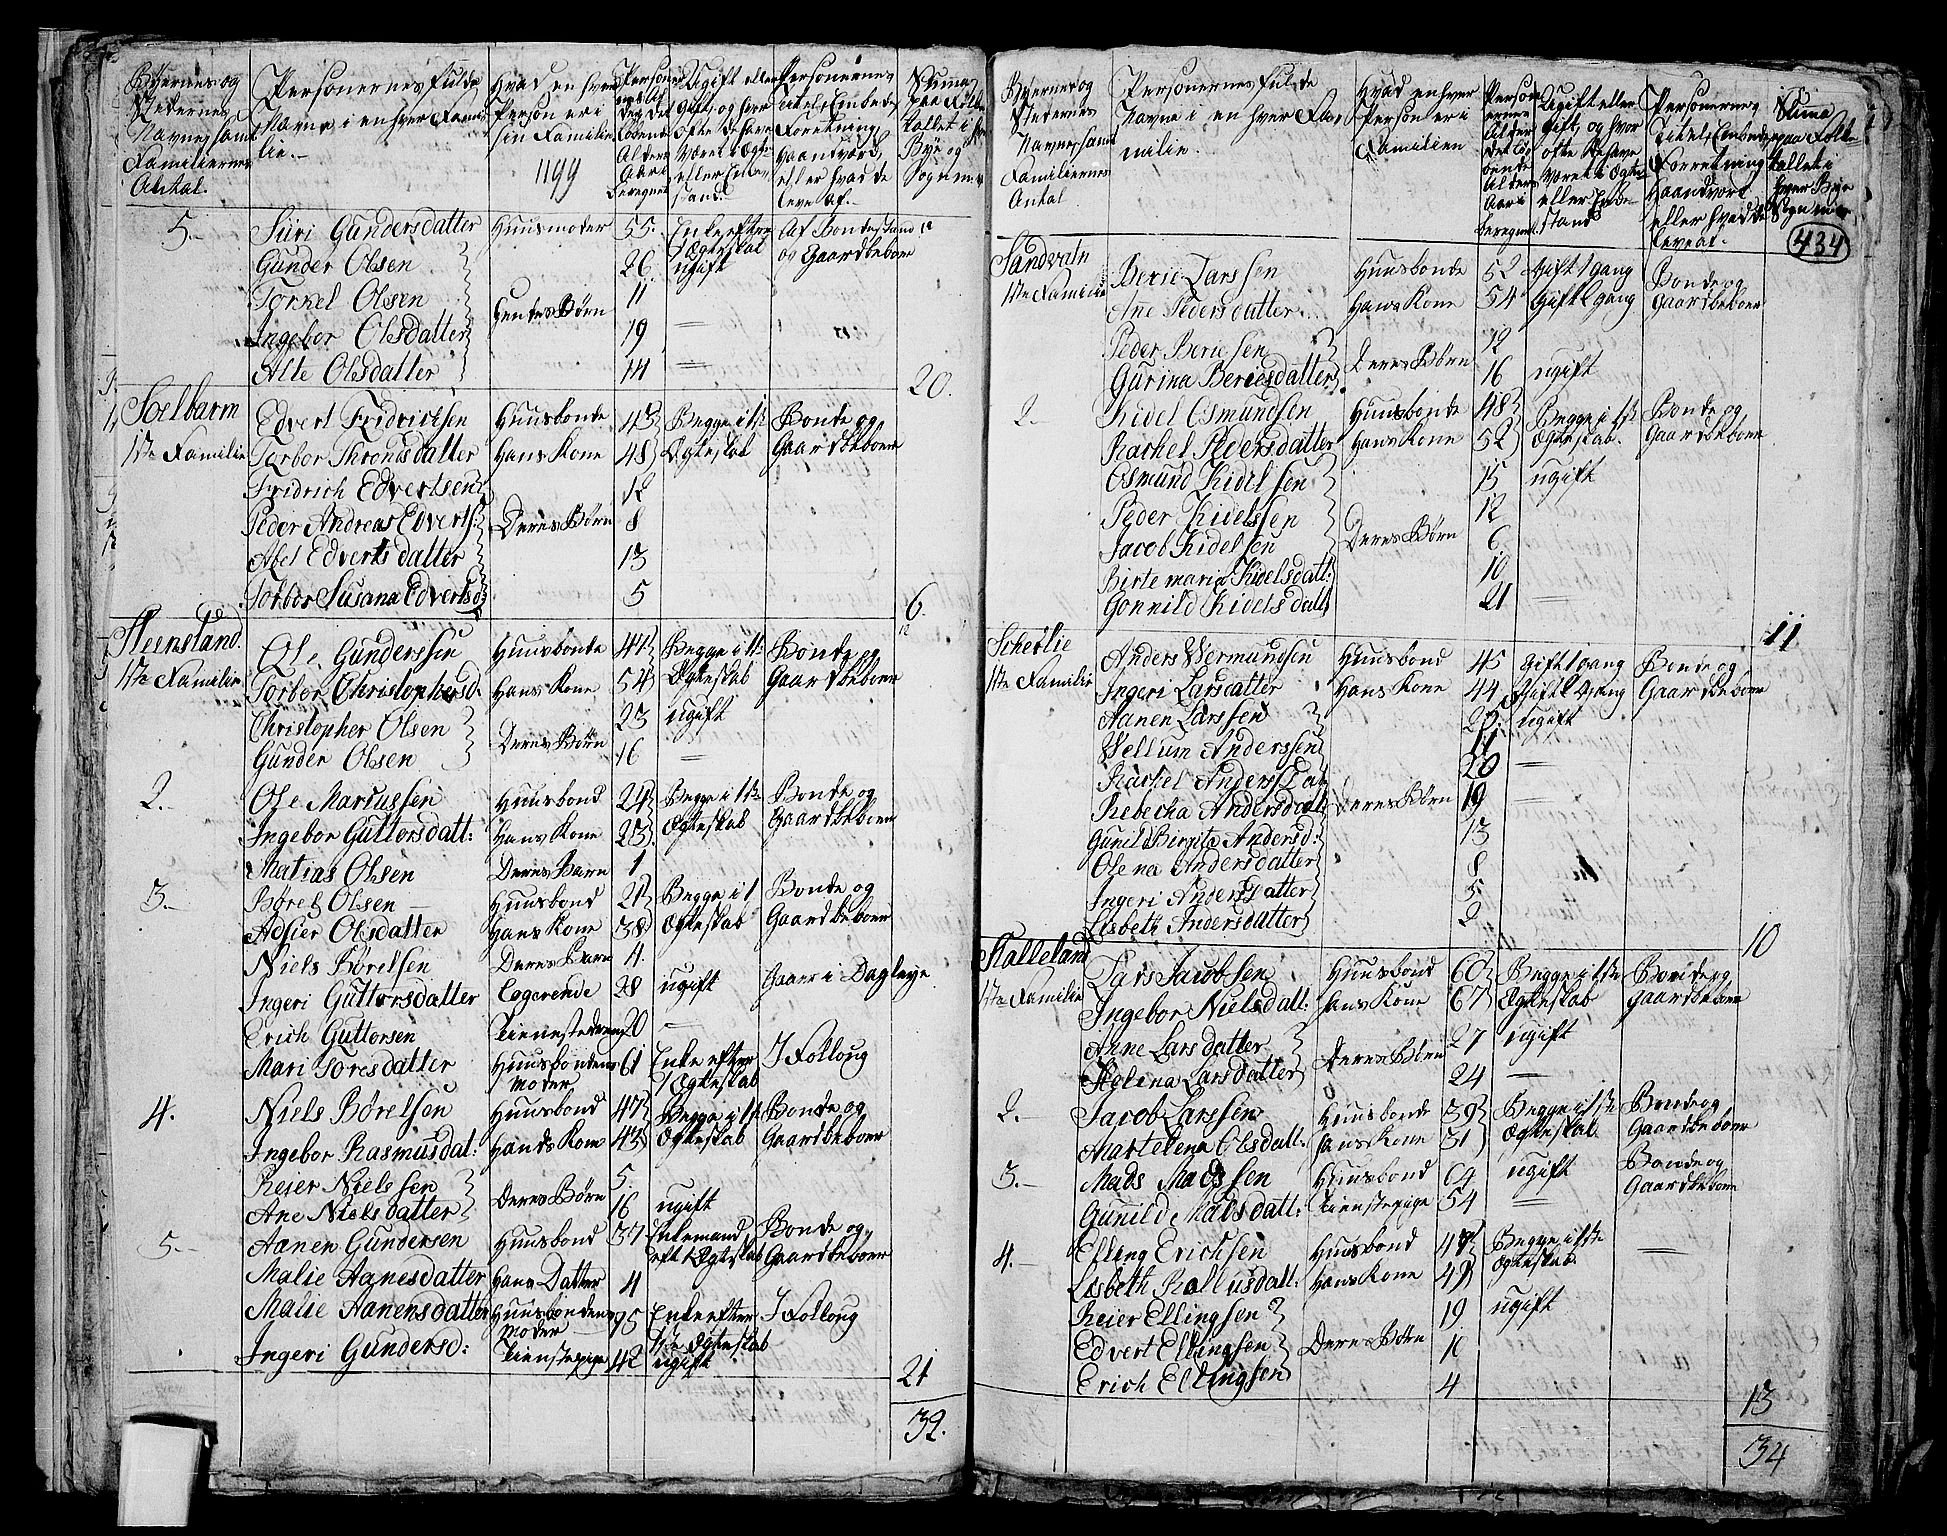 Byernes og
Stedernes
Navne, samt
Familiernes
Antal.
Personernes fulde
Navne i en hver Fami-
lie.
Hvad en hver
Person er i
sin Familie
1199
Ugift eller
Gift, og hvor
ofte de have
været i Ægte-
eller Enke-
stand.
Personernes
Titel, Embede,
Forretning,
Haandværk,
eller hvad de
leve af.
Summa
paa Folke-
tallet i hver
Bye og
Sogn
5. Siiri Gundersdatter Huusmoder 55. Enke efter 1 Ægteskab Af Bondestand og Gaardbeboer
Gunder Olsen 26 ugift
Torkel Olsen Hendes Børn 11
Ingebor Olsdatter 19 —
Alte Olsdatter 14 — 20.
Selbarm
1ste Familie Edvert Fridrichsen Huusbonde 43 Begge i 1ste Ægteskab Bonde og Gaardbeboer
Torbor Thronsdatter Hans Kone 48
Fridrich Edvertsen 12
Peder Andreas Edverts: Deres Børn 8
Abel Edvertsdatter 13
Torbor Susana Edvertsd: 5 6.
Steensland.
1ste Familie Ole Gunderssen Huusbonde 44 Begge i 1ste Ægteskab Bonde og Gaardbeboer
Torbor Christophersd. Hans Kone 54
Christopher Olsen Deres Børn 23 ugift
Gunder Olsen 16 —
2. Ole Marcussen Huusbond 24 Begge i 1ste Ægteskab Bonde og Gaardbeboer
Ingebor Guttorsdatt: Hans Kone 23
Matias Olsen Deres Barn 1
3. Børel Olsen Huusbond 27 Begge i 1 Ægteskab Bonde og Gaardbeboer
Adsier Olsdatter Hans Kone 38
Niels Børelsen Deres Barn 4.
Ingeri Guttorsdatter Logerende 28 ugift Gaaer i Dagleye
Erich Guttorsen Tienestedreng 20 —
Mari Toresdatter Huusbondens Moder 61 Enke efter 1 Ægteskab I Folloug
4. Niels Børelsen Huusbond 47 Begge i 1ste Ægteskab Bonde og Gaardbeboer
Ingebor Rasmusdat: Hands Kone 43
Reier Nielssen Deres Børn 5.
Ane Nielsdatter 16 ugift
5. Aanen Gundersen Huusbond 37 Enkemand eft 1 Ægteskab Bonde og Gaardbeboer
Malie Aanesdatter Hans Datter 4
Malie Aanensdatter Huusbondens Moder 75 Enke efter 1ste Ægteskab I Folloug
Ingeri Gundersd: Tienstepige 42 ugift 21
32.
Byernes og
Stedernes
Navne, samt
Familiernes
Antal
Personernes fulde
Navne i en hver Fa-
milie.
Hvad enhver
Person er i
Familien
Person-
ernes
Alder
det lø-
bende
Alders
Aar i
beregnet
Ugift eller
Gift, og hvor
ofte de have
været i Ægte-
eller Enke-
stand
Personernes
Titel, Embede,
Forretning
Haandværk
eller hvad de
leve af.
Suma
paa Folke-
tallet i
hver Bye
Sogn
434
Sandvatn
1ste Familie Berie Larssen Huusbonde 52 Gift 1 gang Bonde og Gaardbeboer
Ane Pedersdatter Hans Kone 54 Gift 2 gang
Peder Beriesen Deres Børn 12
Gurina Beriesdatter 16 ugift
2. Kidel Osmundsen Huusbonde 48 Begge i 1ste Ægteskab. Bonde og Gaardbeboer
Rachel Pedersdatter Hans Kone 52
Osmund Kidelsen 15 ugift
Peder Kidelssen 12
Jacob Kidelsen Deres Børn 6
Birte maria Kidelsdatt: 10
Gonnild Kidelsdatt 21 — 11
Scherlie
1ste Familie Anders Wermundsen Huusbond 45 Gift 1 gang Bonde og Gaardbeboer
Ingeri Larsdatter Hans Kone 44 Gift 2 Gang
Aanen Larssen ugift
Wellum Anderssen
Rachel Andersdat 20
Rebecha Andersdat: Deres Børn 19 —
Gunil Birgite Andersd: 13
Olena Andersdatter 8
Ingeri Andersdatter 5
Lisbeth Andersdatter 2 10
Stalleland
1ste Familie Lars Jacobsen Huusbond 60 Begge i 1ste Ægteskab Bonde og Gaardbeboer
Ingebor Nielsdatt: Hans Kone 67
Anne Larsdatter Deres Børn 27 ugift
Helena Larsdatter 24 —
2. Jacob Larssen Huusbonde 39 Begge i 1ste Ægteskab. Bonde og Gaardbeboer
Martelena Olsdatt: Hans Kone 31
3. Mads Madssen Huusbond 64 ugift Bonde og Gaardbeboer
Gunild Madsdatt: Tienstepige 54 —
4. Elling Erichsen Huusbond 47 Begge i 1ste Ægteskab. —
Lisbeth Rallusdatt: Hans Kone 49
Reier Ellingsen 19. ugift
Edvert Ellingsen Deres Børn 10
Erich Ellingsen 4
13
34